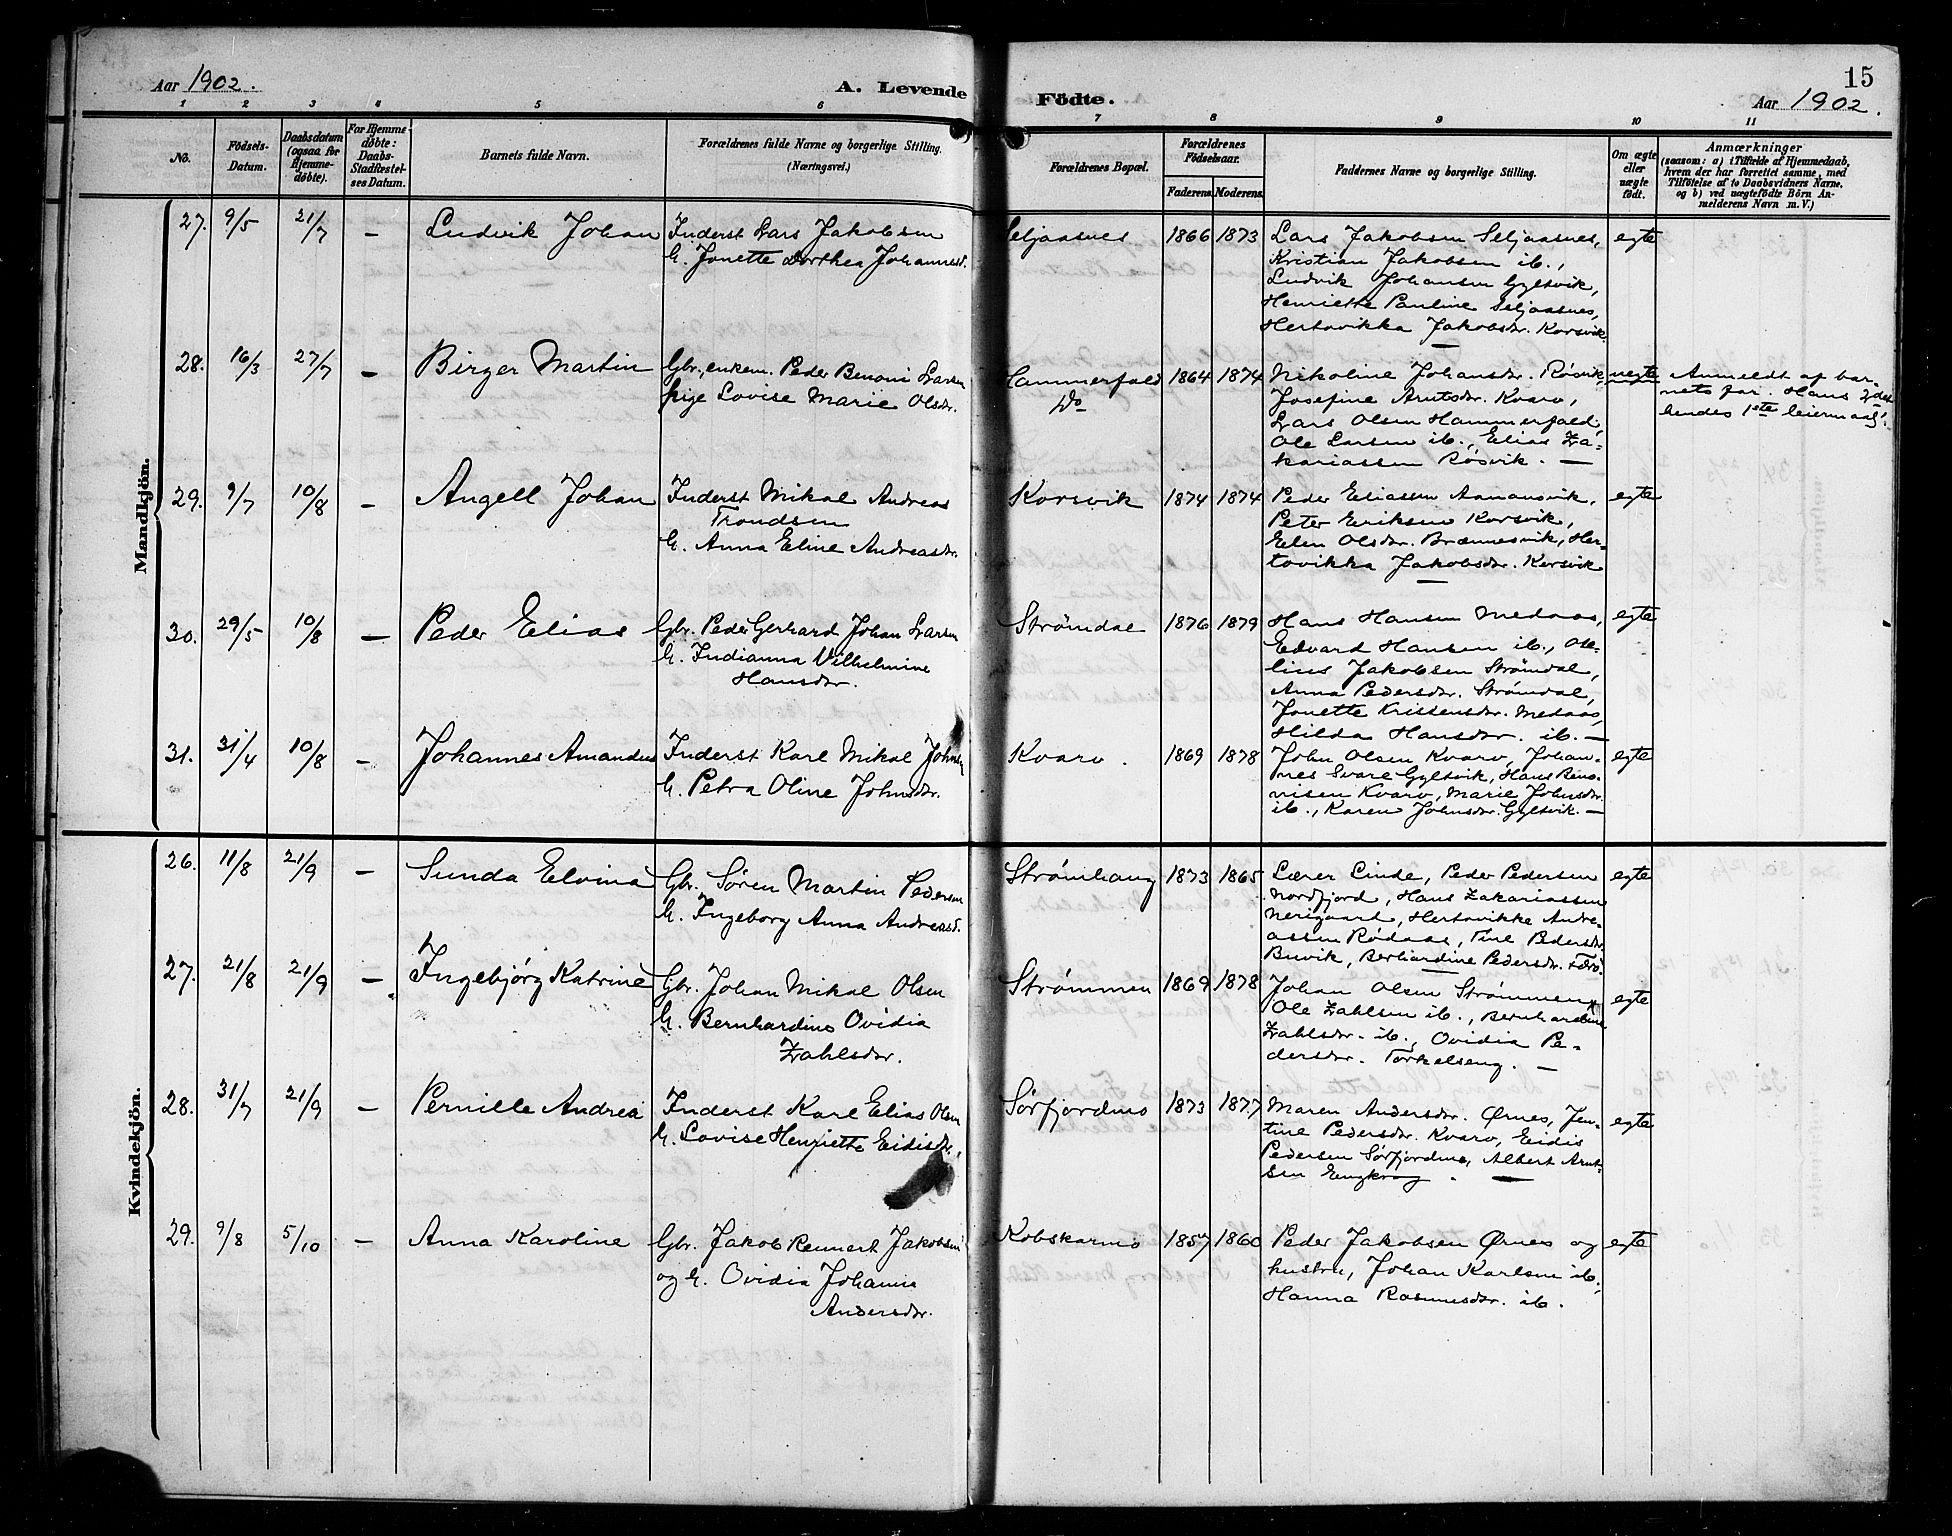 15
Aar 1902.
A. Levende
Födte.
Aar 1902.
1 2 3 4 5 6 7 8 9 10 11
No.
Födsels-
Datum.
Daabsdatum
(ogsaa for
Hjemme-
døbte).
For Hjemme-
døbte:
Daabs-
Stadfæstel-
ses Datum.
Barnets fulde Navn.
Forældrenes fulde Navne og borgerlige Stilling.
(Næringsvei.)
Forældrenes Bopæl.
Forældrenes
Födselsaar.
Faderens. Moderens.
Faddernes Navne og borgerlige Stilling.
Om ægte
eller
uægte
født.
Anmærkninger
(saasom: a) i Tilfælde af Hjemmedaab,
hvem der har forrettet samme, med
Tilföielse af to Daabsvidners Navne,
og b) ved uægtefödte Börn An-
melderens Navn m. V.)
Mandkjön.
27. 9/5 21/7 – Ludvik Johan
Inderst Lars Jakobsen
h. Jonette Dorthea Johannesd.
Seljaasnes 1866 1873
Lars Jakobsen Seljaasnes,
Kristian Jakobsen ib.,
Ludvik Johansen Gyltvik,
Henriette Pauline Seljaasnes,
Hertovikka Jakobsdr. Korsvik.
egte
28. 16/3 27/7 – Birger Martin
Gbr., enkem. Peder Benoni Larsen
pige Lovise Marie Olsdr.
Hammerfald
Do
1864 1874
Nikoline Johansdr. Røsvik,
Josefine Arntsdr. Kvarv,
Lars Olsen Hammerfald,
Ole Larsen ib., Elias Za-
kariassen Røsvik. –
uegte
Anmeldt af bar-
nets far. Hans 2det
hendes 1ste leiermaal.
29. 9/7 10/8 – Angell Johan
Inderst Mikal Andreas
Trondsen
h. Anna Eline Andreasdr.
Korsvik 1874 1874
Peder Eliassen Aanansvik,
Peter Eriksen Korsvik,
Elen Olsdr. Brænnesvik, Her-
tovikka Jakobsdr. Korsvik
egte
30. 29/5 10/8 – Peder Elias
Gbr. Peder Gerhard Johan Larsen
h. Indianna Vilhelmine
Hansdr.
Strømdal 1876 1879
Hans Hansen Medaas,
Edvard Hansen ib., Ol-
lius Jakobsen Strømdal,
Anna Pedersdr. Strømdal,
Jonette Kristensdr. Medaas,
Hilda Hansdr. ib. –
egte
31. 31/4 10/8 – Johannes Amandus
Inderst Karl Mikal Johnsen
h. Petra Oline Johnsdr.
Kvarv. 1869 1878
John Olsen Kvarv, Johan-
nes Svare Gyltvik, Hans
Kvarv, Marie Johnsdr.
ib., Karen Johnsdr. Gyltvik. –
egte
Kvindekjön.
26. 11/8 21/9 – Sunda Elvina
Gbr. Søren Martin Pedersen
h. Ingeborg Anna Andreasd.
Strømhaug 1873 1865
Lærer Linde, Peder Pedersen
Nordfjord, Hans Zakariassen
Nerigaard, Hertovikke Andre-
assen Rødaas, Tine Pedersdr.
Buvik, Berhardine Pedersdr.
egte
27. 21/8 21/9 – Ingebjørg Katrine
Gbr. Johan Mikal Olsen
h. Bernhardine Ovidia
Zahlsdr.
Strømmen 1869 1878
Johan Olsen Strømmen,
Ole Zahlsen ib., Bernhardine
Zahlsdr. ib., Ovidia Pe-
dersdr. Torkelseng. –
egte
28. 31/7 21/9 – Pernille Andrea
Inderst Karl Elias Olsen
h. Lovise Henriette Eidisdr.
Sørfjordmo 1873 1877
Maren Andersdr. Ørnes, Jen-
tine Pedersdr. Kvarv, Eidis
Pedersen Sørfjordmo, Albert Arnt-
sen Engkrog. –
egte
29. 9/8 5/10 – Anna Karoline
Gbr. Jakob Rennert Jakobsen
og h. Ovidia Johanna
Andersdr.
Kobskarmo 1857 1860
Peder Jakobsen Ørnes og
hustru, Johan Karlsen ib.,
Hanna Rasmusdr. ib.
egte